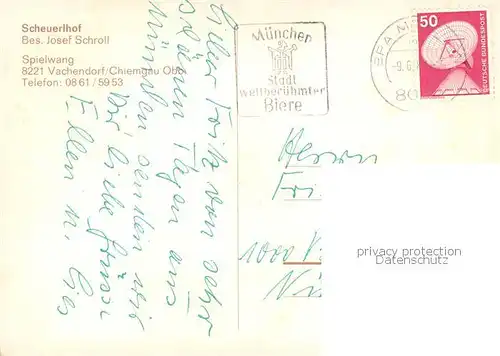 Scheuerlhof
Bes. Josef Schroll
Spielwang
8221 Vachendorf/Chiemgau Obb.
Telefon: 08 61 / 59 53
Lieber Fritz von sehr
schönen Tagen aus
München senden wir
Dir liebe Grüsse
Ellen u.
München
Stadt
weltberühmter
Biere
BPA M
80
50
DEUTSCHE BUNDESPOST
Herrn
Fri
1000
privacy protection
Datenschutz